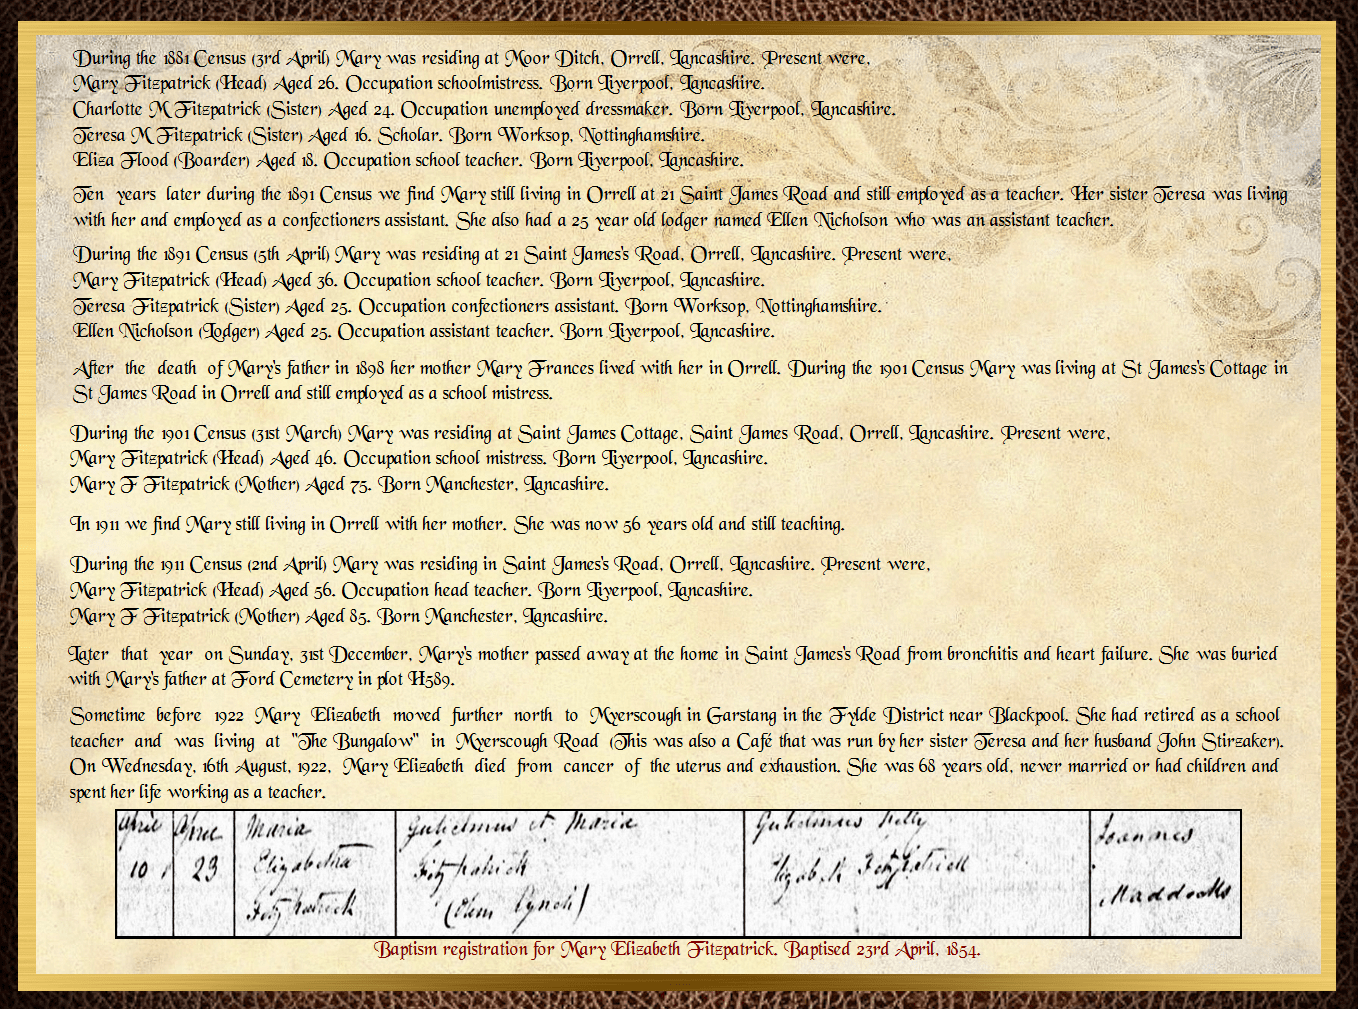 During the 1881 Census (3rd April) Mary was residing at Moor Ditch, Orrell, Lancashire. Present were,
Mary Fitzpatrick (Head) Aged 26. Occupation schoolmistress. Born Liverpool, Lancashire.
Charlotte M Fitzpatrick (Sister) Aged 24. Occupation unemployed dressmaker. Born Liverpool, Lancashire.
Teresa M Fitzpatrick (Sister) Aged 16. Scholar. Born Worksop, Nottinghamshire.
Eliza Flood (Boarder) Aged 18. Occupation school teacher. Born Liverpool, Lancashire.
Ten years later during the 1891 Census we find Mary still living in Orrell at 21 Saint James Road and still employed as a teacher. Her sister Teresa was living
with her and employed as a confectioners assistant. She also had a 25 year old lodger named Ellen Nicholson who was an assistant teacher.
During the 1891 Census (5th April) Mary was residing at 21 Saint James's Road, Orrell, Lancashire. Present were,
Mary Fitzpatrick (Head) Aged 36. Occupation school teacher. Born Liverpool, Lancashire.
Teresa Fitzpatrick (Sister) Aged 25. Occupation confectioners assistant. Born Worksop, Nottinghamshire.
Ellen Nicholson (Lodger) Aged 25. Occupation assistant teacher. Born Liverpool, Lancashire.
After the death of Mary's father in 1898 her mother Mary Frances lived with her in Orrell. During the 1901 Census Mary was living at St James's Cottage in
St James Road in Orrell and still employed as a school mistress.
During the 1901 Census (31st March) Mary was residing at Saint James Cottage, Saint James Road, Orrell, Lancashire. Present were,
Mary Fitzpatrick (Head) Aged 46. Occupation school mistress. Born Liverpool, Lancashire.
Mary F Fitzpatrick (Mother) Aged 75. Born Manchester, Lancashire.
In 1911 we find Mary still living in Orrell with her mother. She was now 56 years old and still teaching.
During the 1911 Census (2nd April) Mary was residing in Saint James's Road, Orrell, Lancashire. Present were,
Mary Fitzpatrick (Head) Aged 56. Occupation head teacher. Born Liverpool, Lancashire.
Mary F Fitzpatrick (Mother) Aged 85. Born Manchester, Lancashire.
Later that year on Sunday, 31st December, Mary's mother passed away at the home in Saint James's Road from bronchitis and heart failure. She was buried
with Mary's father at Ford Cemetery in plot H589.
Sometime before 1922 Mary Elizabeth moved further north to Myerscough in Garstang in the Fylde District near Blackpool. She had retired as a school
teacher and was living at "The Bungalow" in Myerscough Road (This was also a Café that was run by her sister Teresa and her husband John Stirzaker).
On Wednesday, 16th August, 1922, Mary Elizabeth died from cancer of the uterus and exhaustion. She was 68 years old, never married or had children and
spent her life working as a teacher.
April April Maria Gulielmus et Maria Gulielmus Kelly Joannes
10 23 Elizabetha Fitzpatrick Elizabeth Fitzpatrick Maddocks
Fitzpatrick (Olim Lynch)
Baptism registration for Mary Elizabeth Fitzpatrick. Baptised 23rd April, 1854.